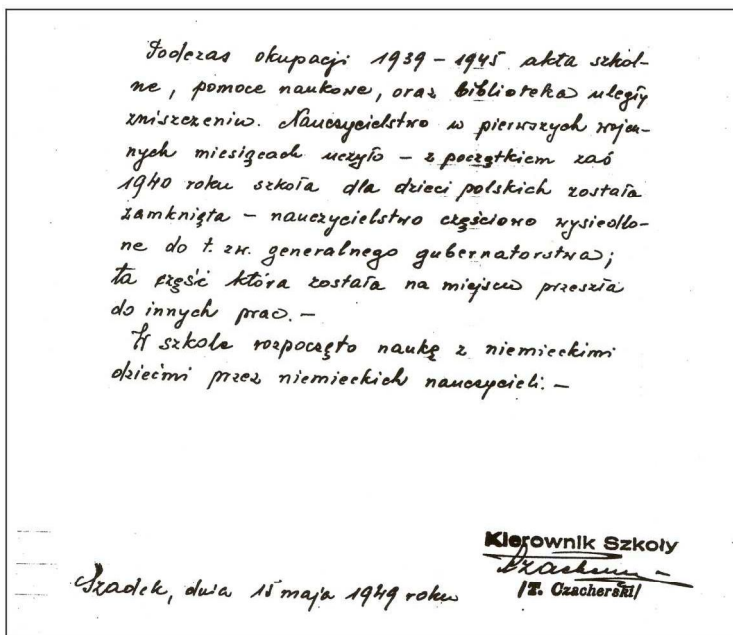 Podczas okupacji 1939 – 1945 akta szkol-
ne, pomoce naukowe, oraz biblioteka uległy
zniszczeniu. Nauczycielstwo w pierwszych wojen-
nych miesiącach uczyło – z początkiem zaś
1940 roku szkoła dla dzieci polskich została
zamknięta – nauczycielstwo częściowo wysiedlo-
ne do t. zw. generalnego gubernatorstwa;
ta część która została na miejscu przeszła
do innych prac. –
W szkole rozpoczęto naukę z niemieckimi
dziećmi przez niemieckich nauczycieli. –
Kierownik Szkoły
Czachersk
/T. Czacherski/
Szadek, dnia 15 maja 1949 roku